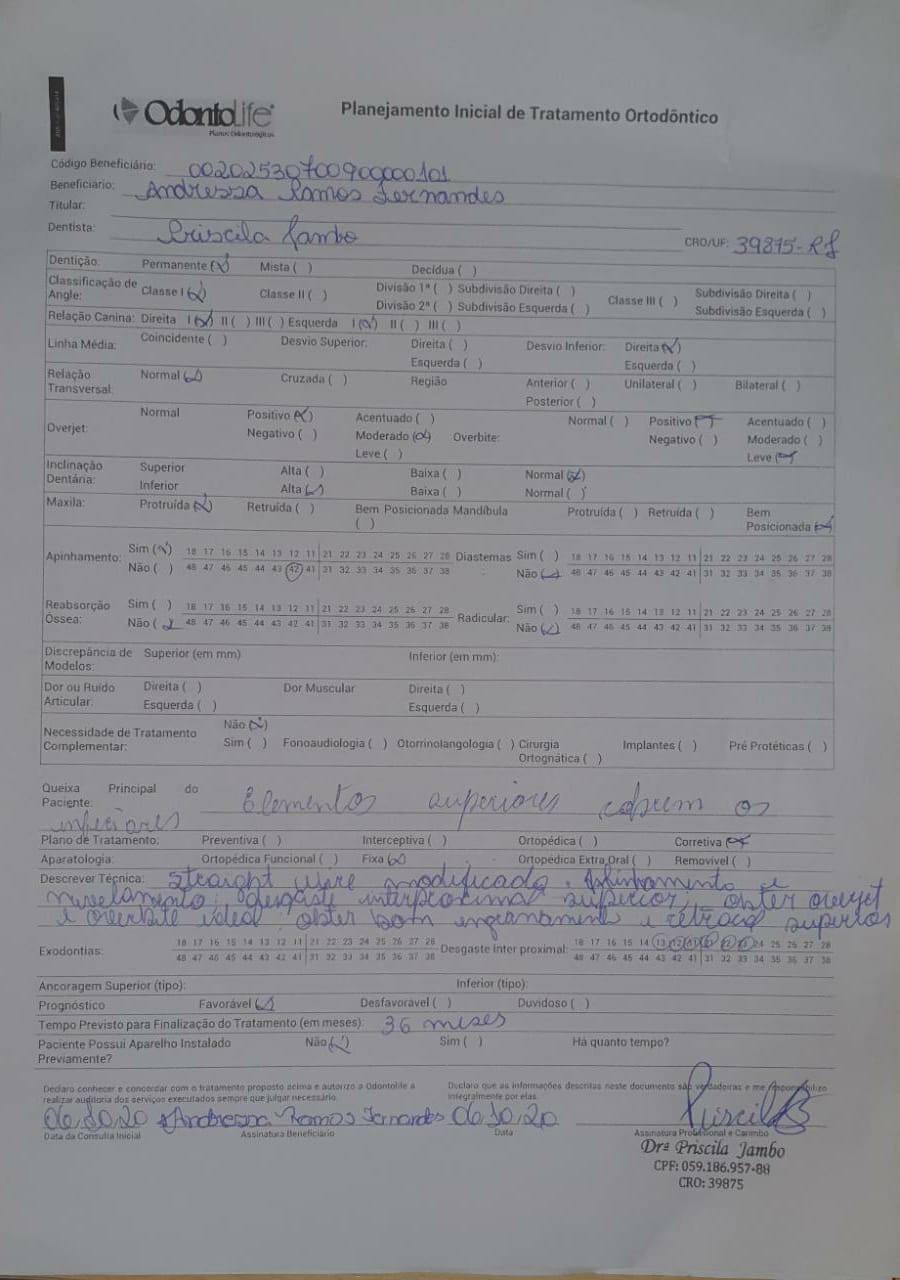 OdontoLife
Planos Odontológicos
Planejamento Inicial de Tratamento Ortodôntico
Código Beneficiário: 00202530700900000101
Beneficiário: Andressa Ramos Fernandes
Titular:
Dentista: Priscila Jambo CRO/UF: 39875-RJ
Dentição: Permanente (x) Mista ( ) Decídua ( )
Classificação de Angle: Classe I (x) Classe II ( ) Divisão 1ª ( ) Subdivisão Direita ( ) Classe III ( ) Subdivisão Direita ( )
Divisão 2ª ( ) Subdivisão Esquerda ( ) Subdivisão Esquerda ( )
Relação Canina: Direita I (x) II ( ) III ( ) Esquerda I (x) II ( ) III ( )
Linha Média: Coincidente ( ) Desvio Superior: Direita ( ) Desvio Inferior: Direita (x)
Esquerda ( ) Esquerda ( )
Relação Transversal: Normal (x) Cruzada ( ) Região Anterior ( ) Unilateral ( ) Bilateral ( )
Posterior ( )
Overjet: Normal Positivo (x) Acentuado ( ) Overbite: Normal ( ) Positivo (x) Acentuado ( )
Negativo ( ) Moderado (x) Negativo ( ) Moderado ( )
Leve ( ) Leve (x)
Inclinação Dentária: Superior Alta ( ) Baixa ( ) Normal (x)
Inferior Alta (x) Baixa ( ) Normal ( )
Maxila: Protruída (x) Retruída ( ) Bem Posicionada ( ) Mandíbula Protruída ( ) Retruída ( ) Bem Posicionada (x)
Apinhamento: Sim (x) 18 17 16 15 14 13 12 11 21 22 23 24 25 26 27 28 Diastemas Sim ( ) 18 17 16 15 14 13 12 11 21 22 23 24 25 26 27 28
Não ( ) 48 47 46 45 44 43 42 41 31 32 33 34 35 35 37 38 : Não (x) 48 47 46 45 44 43 42 41 31 32 33 34 35 36 37 38
Reabsorção Óssea: Sim ( ) 18 17 16 15 14 13 12 11 21 22 23 24 25 26 27 28 Radicular: Sim ( ) 18 17 16 15 14 13 12 11 21 22 23 24 25 26 27 28
Não (x) 48 47 46 45 44 43 42 41 31 32 33 34 35 36 37 38 Não (x) 48 47 46 45 44 43 42 41 31 32 33 34 35 36 37 38
Discrepância de Modelos: Superior (em mm) Inferior (em mm):
Dor ou Ruído Articular: Direita ( ) Dor Muscular Direita ( )
Esquerda ( ) Esquerda ( )
Necessidade de Tratamento Complementar: Não (x)
Sim ( ) Fonoaudiologia ( ) Otorrinolangologia ( ) Cirurgia Ortognática ( ) Implantes ( ) Pré Protéticas ( )
Queixa Principal do Paciente: Elementos superiores cobrem os
inferiores
Plano de Tratamento: Preventiva ( ) Interceptiva ( ) Ortopédica ( ) Corretiva (x)
Aparatologia: Ortopédica Funcional ( ) Fixa (x) Ortopédica Extra Oral ( ) Removível ( )
Descrever Técnica: Straight wire modificado. Alinhamento e
nivelamento, desgaste interproximal superior, obter overjet
e overbite ideal, obter bom engrenamento e retração superior
Exodontias: 18 17 16 15 14 13 12 11 21 22 23 24 25 26 27 28 Desgaste Inter proximal: 18 17 16 15 14 13 12 11 21 22 23 24 25 26 27 28
48 47 46 45 44 43 42 41 31 32 33 34 35 36 37 38 48 47 46 45 44 43 42 41 31 32 33 34 35 36 37 38
Ancoragem Superior (tipo): Inferior (tipo):
Prognóstico Favorável (x) Desfavorável ( ) Duvidoso ( )
Tempo Previsto para Finalização do Tratamento (em meses): 36 meses
Paciente Possui Aparelho Instalado Previamente? Não (x) Sim ( ) Há quanto tempo?
Declaro conhecer e concordar com o tratamento proposto acima e autorizo a Odontolife a realizar auditoria dos serviços executados sempre que julgar necessário.
Declaro que as informações descritas neste documento são verdadeiras e me responsabilizo integralmente por elas.
06.10.20 Andressa Ramos Fernandes 06.10.20
Data da Consulta Inicial Assinatura Beneficiário Data Assinatura Profissional e Carimbo
Drª Priscila Jambo
CPF: 059.186.957-88
CRO: 39875